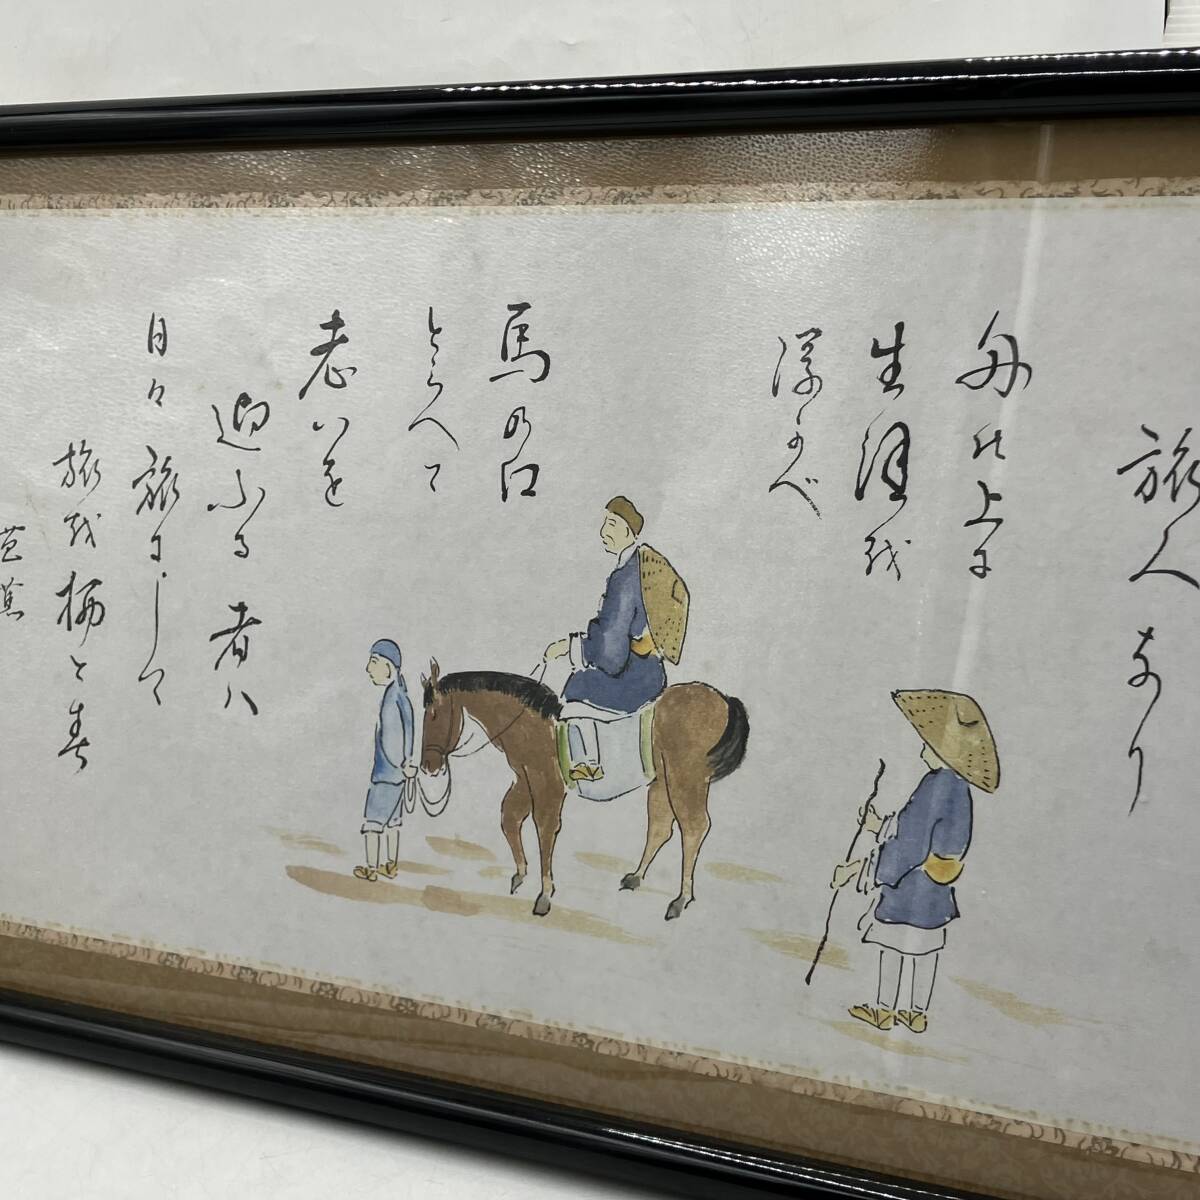 旅人なり
舟の上に
生涯を
浮かべ
馬の口
とらへて
老いを
迎ふる者ハ
日々旅にして
旅を栖とす
芭蕉